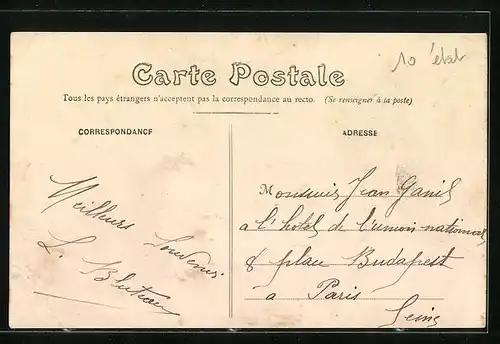 10 état
Carte Postale
Tous les pays étrangers n'acceptent pas la correspondance au recto. (Se renseigner à la poste)
CORRESPONDANCE
ADRESSE
Meilleurs Souvenirs
L.
Monsieur Jean
a l'hotel de l'union nationale
8 place Budapest
a Paris
Seine